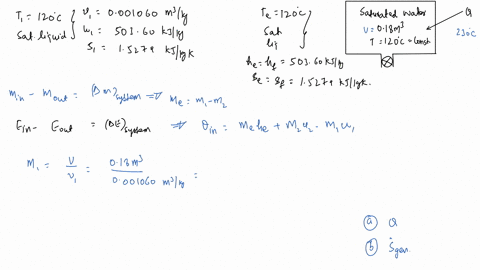 T₁ = 120°C
Sat. liquid
v₁ = 0.001060 m³/kg
u₁ = 503.60 kJ/kg
s₁ = 1.5279 kJ/kgK
Te = 120°C
Sat
liq
he = hf = 503.60 kJ/kg
se = sf = 1.5279 kJ/kgK.
Saturated water
V = 0.18 m³
T = 120°C = const
Q
230°C
min - mout = (Δm)system ⇒ me = m₁ - m₂
Ein - Eout = (ΔE)system ⇒ Qin = me he + m₂ u₂ - m₁ u₁
M₁ = V / v₁ = 0.18 m³ / 0.001060 m³/kg =
(a) Q
(b) Ṡgen.